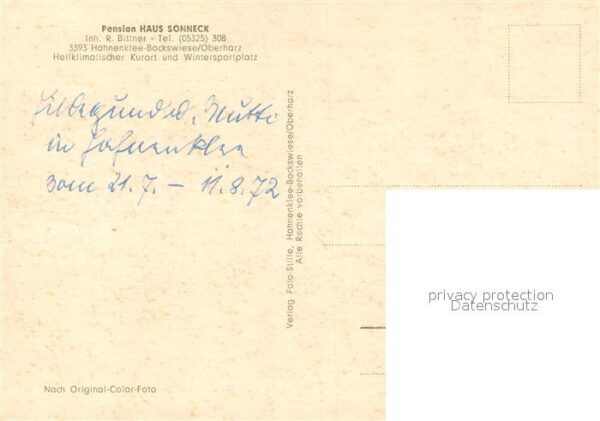 Pension HAUS SONNECK
Inh. R. Bittner • Tel. (05325) 308
3393 Hahnenklee-Bockswiese/Oberharz
Heilklimatischer Kurort und Wintersportplatz
Hildegund u. Mutti
in Hahnenklee
vom 21.7. – 11.8.72
Verlag Foto-Stille, Hahnenklee-Bockswiese/Oberharz
Alle Rechte vorbehalten
privacy protection
Datenschutz
Nach Original-Color-Foto